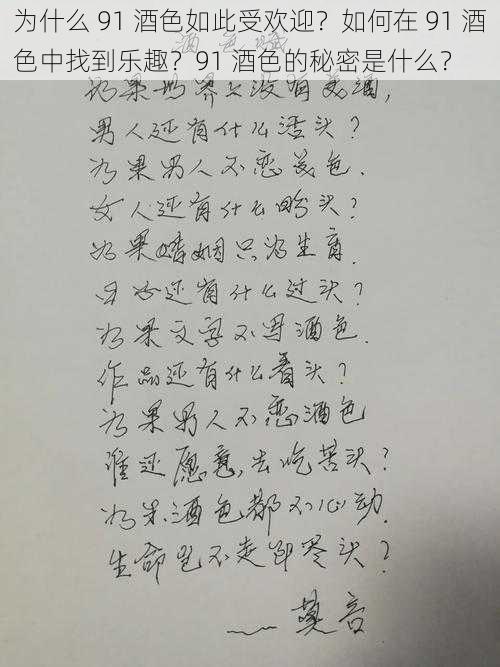 为什么 91 酒色如此受欢迎？如何在 91 酒
色中找到乐趣？91 酒色的秘密是什么？
酒色赋
如果世界上没有美酒，
男人还有什么活头？
如果男人不恋美色.
女人还有什么盼头？
如果婚姻只为生育.
日子还有什么过头？
如果文字不写酒色.
作品还有什么看头？
如果男人不恋酒色
谁还愿意,去吃苦头？
如果酒色都不心动.
生命岂不走即尽头？
——莫言